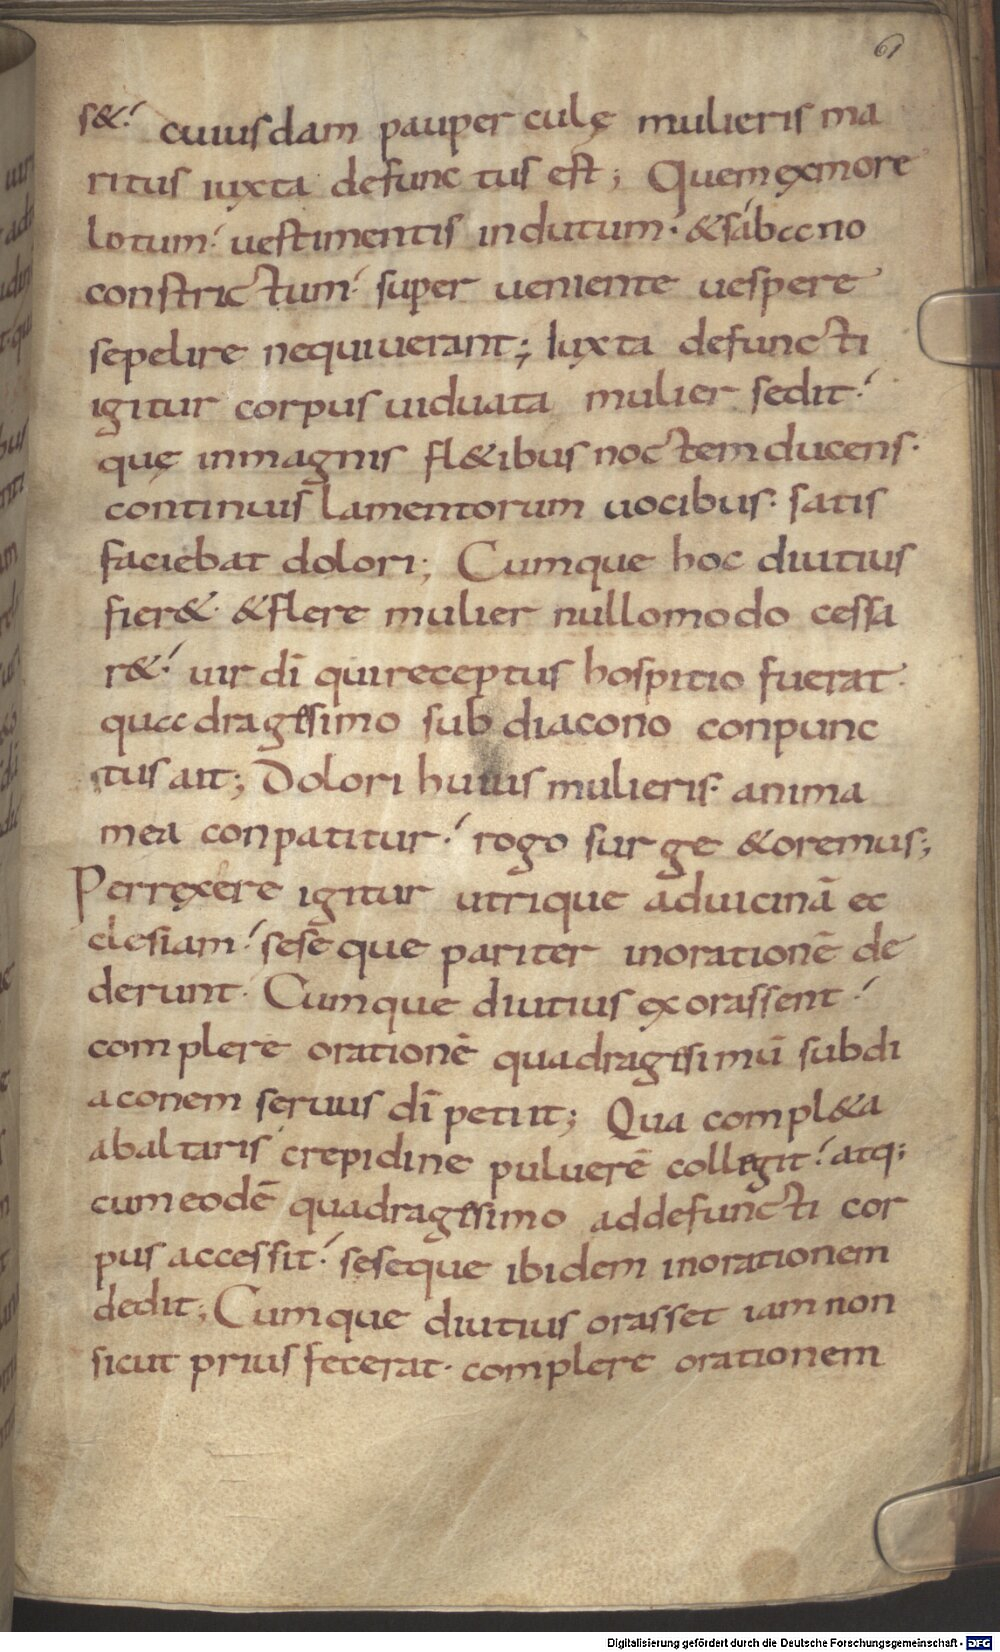 61
s&· cuiusdam pauper culę mulieris ma
ritus iuxta defunc tus est; Quem ex more
lotum· uestimentis indutum· & sabano
constrictum· super ueniente uespere
sepelire nequiuerant; Iuxta defuncti
igitur corpus uiduata mulier sedit·
quę inmagnis fl&ibus noctem ducens·
continuis lamentorum uocibus· satis
faciebat dolori; Cumque hoc diutius
fier&· & flere mulier nullomodo cessa
r&· uir dī qui receptus hospitio fuerat·
quadragesimo sub diacono conpunc
tus ait; Dolori huius mulieris· anima
mea conpatitur· rogo surge & oremus;
Perrexere igitur utrique aduicinā ec
clesiam· seseque pariter inorationē de
derunt· Cumque diutius exorassent·
complere orationē quadragesimū subdi
aconem seruus dī petiit; Qua compl&a
abaltaris crepidine puluerē collegit· atq;
cum eodē quadragesimo addefuncti cor
pus accessit· seseque ibidem inorationem
dedit; Cumque diutius orasset iam non
sicut prius fecerat· complere orationem
Digitalisierung gefördert durch die Deutsche Forschungsgemeinschaft - DFG